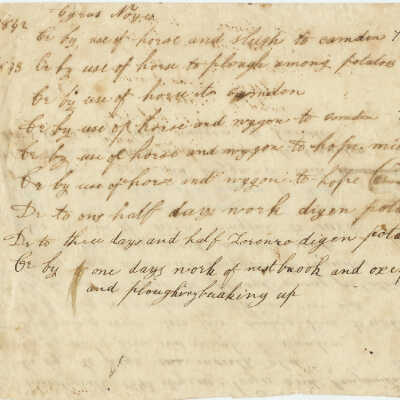 Cyrus Noyes
1832
Cr by use of horse and sleigh to camden
1833 Cr by use of horse to plough among potatoes
Cr by use of horse to camdon
Cr by use of horse and waggon to camden
Cr by use of horse and waggon to hope
Cr by use of horse and waggon to hope
Dr to one half days work digen
Dr to three days and half Lorenzo digen
Cr by one days work of and
and ploughing breaking up